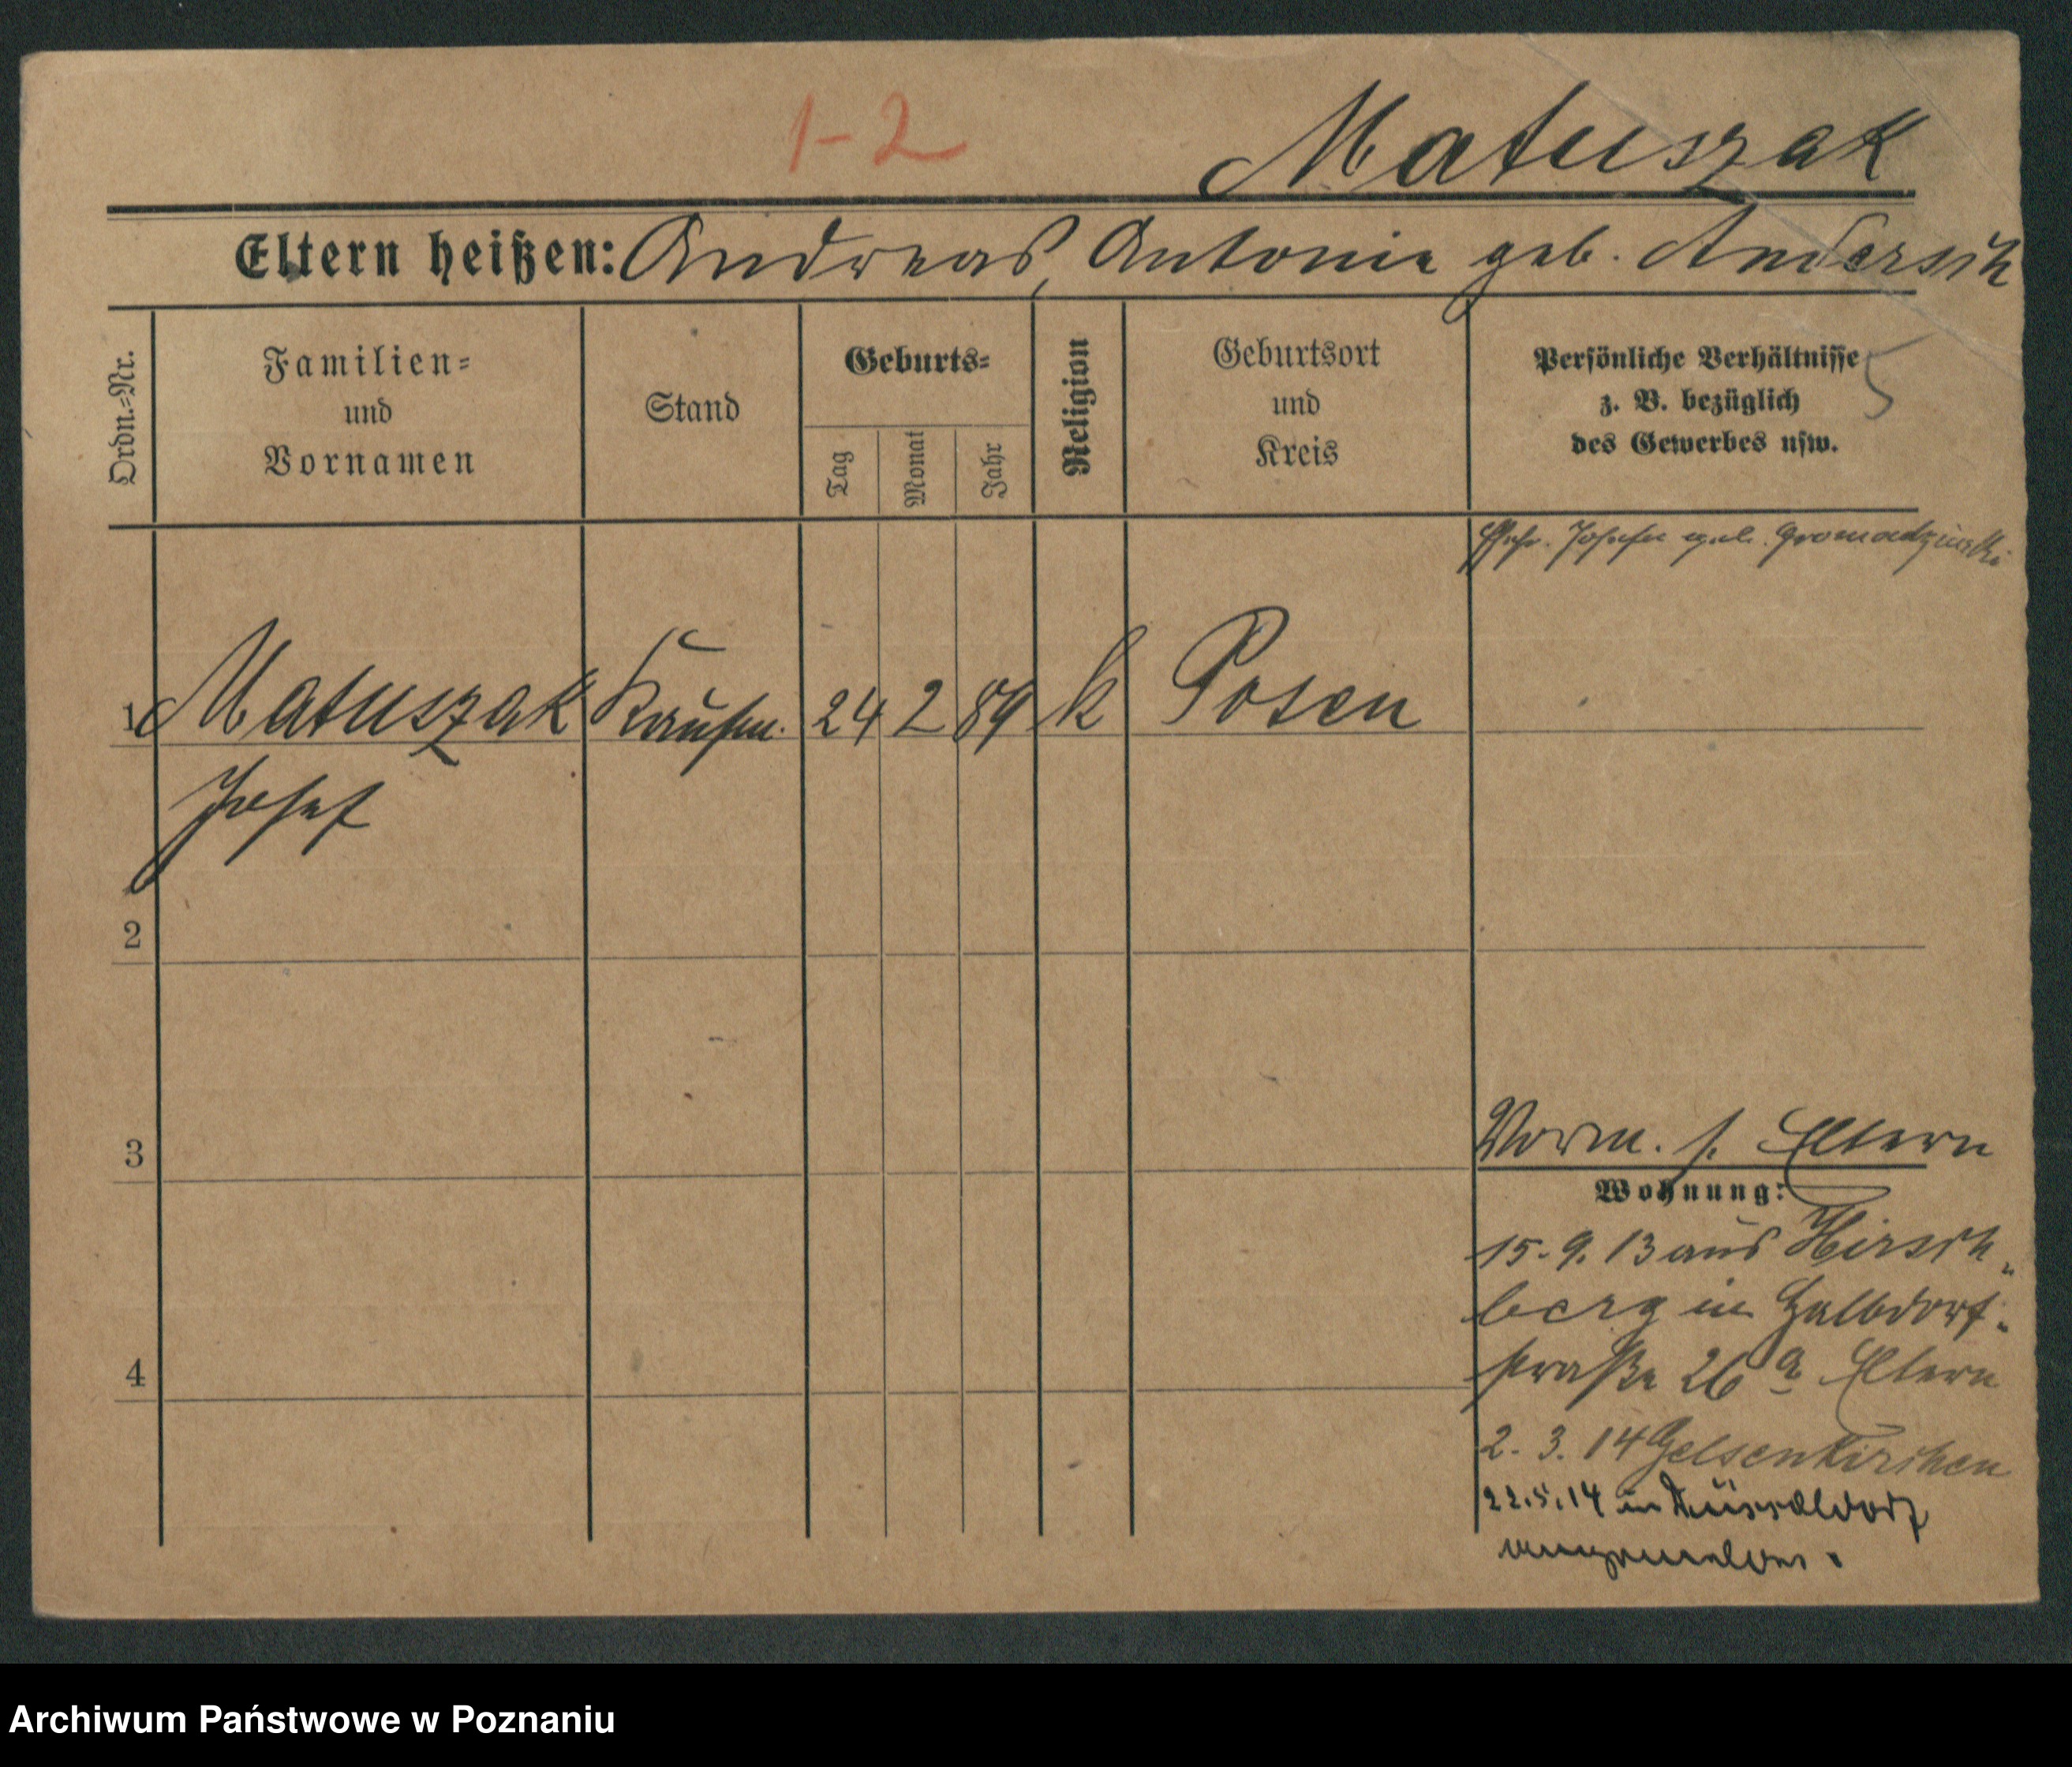 1-2
Matuszak
Eltern heißen: Andreas, Antonie geb. Andersch
Ordn.-Nr.
Familien-
und
Vornamen
Stand
Geburts-
Tag
Monat
Jahr
Religion
Geburtsort
und
Kreis
Persönliche Verhältnisse
z. B. bezüglich
des Gewerbes usw.
5
Ehefr. Josefa geb. Gromadzinski
1 Matuszak Kaufm. 24 2 89 k Posen
Josef
2
3
Vorm. s. Eltern
Wohnung:
15.9.13 aus Hirsch-
berg in Halbdorf-
4
straße 26a Eltern
2. 3. 14 Gelsenkirchen
22.5.14 in Düsseldorf
angemeldet.
Archiwum Państwowe w Poznaniu